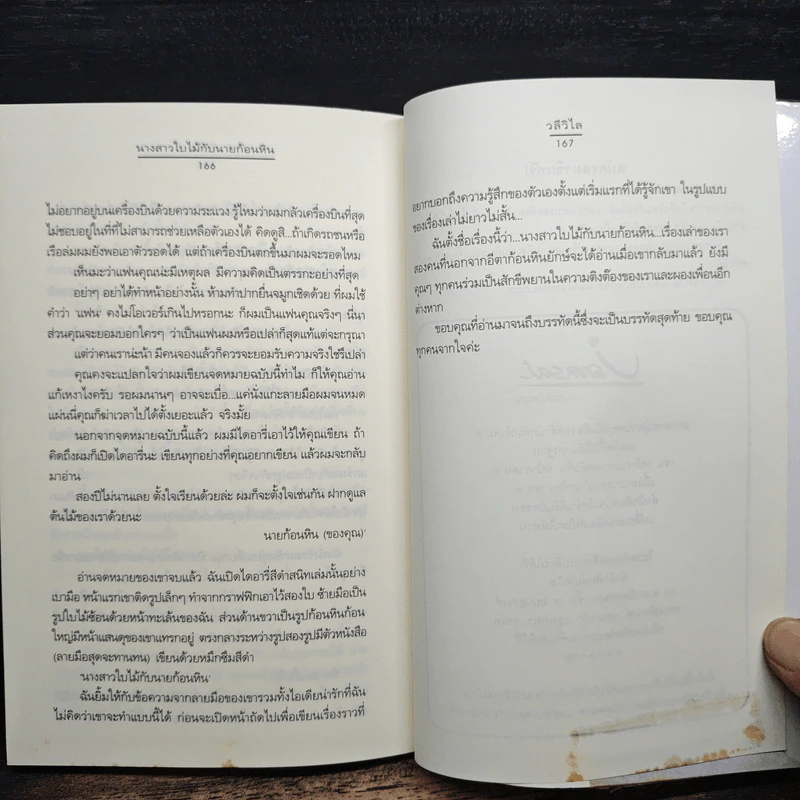 นางสาวใบไม้กับนายก้อนหิน
166
ไม่อยากอยู่บนเครื่องบินด้วยความระแวง รู้ไหมว่าผมกลัวเครื่องบินที่สุด
ไม่ชอบอยู่ในที่ที่ไม่สามารถช่วยเหลือตัวเองได้ คิดดูสิ...ถ้าเกิดรถชนหรือ
เรือล่มผมยังพอเอาตัวรอดได้ แต่ถ้าเครื่องบินตกขึ้นมาผมจะรอดไหม
เห็นมะว่าแฟนคุณน่ะมีเหตุผล มีความคิดเป็นตรรกะอย่างที่สุด
อย่าๆ อย่าได้ทำหน้าอย่างนั้น ห้ามทำปากยื่นจมูกเชิดด้วย ที่ผมใช้
คำว่า 'แฟน' คงไม่โอเวอร์เกินไปหรอกนะ ก็ผมเป็นแฟนคุณจริงๆ นี่นา
ส่วนคุณจะยอมบอกใครๆ ว่าเป็นแฟนผมหรือเปล่าก็สุดแท้แต่จะกรุณา
แต่ว่าคนเราน่ะน้า มีคนจองแล้วก็ควรจะยอมรับความจริงใช่รึเปล่า
คุณคงจะแปลกใจว่าผมเขียนจดหมายฉบับนี้ทำไม ก็ให้คุณอ่าน
แก้เหงาไงครับ รอผมนานๆ อาจจะเบื่อ...แค่นั่งแกะลายมือผมจนหมด
แผ่นนี่คุณก็ฆ่าเวลาไปได้ตั้งเยอะแล้ว จริงมั้ย
นอกจากจดหมายฉบับนี้แล้ว ผมมีไดอารี่เอาไว้ให้คุณเขียน ถ้า
คิดถึงผมก็เปิดไดอารี่นะ เขียนทุกอย่างที่คุณอยากเขียน แล้วผมจะกลับ
มาอ่าน
สองปีไม่นานเลย ตั้งใจเรียนด้วยล่ะ ผมก็จะตั้งใจเช่นกัน ฝากดูแล
ต้นไม้ของเราด้วยนะ
นายก้อนหิน (ของคุณ)'
อ่านจดหมายของเขาจบแล้ว ฉันเปิดไดอารี่สีดำสนิทเล่มนั้นอย่าง
เบามือ หน้าแรกเขาติดรูปเล็กๆ ทำจากกราฟฟิกเอาไว้สองใบ ซ้ายมือเป็น
รูปใบไม้ซ้อนด้วยหน้าทะเล้นของฉัน ส่วนด้านขวาเป็นรูปก้อนหินก้อน
ใหญ่มีหน้าแสนดุของเขาแทรกอยู่ ตรงกลางระหว่างรูปสองรูปมีตัวหนังสือ
(ลายมือสุดจะทานทน) เขียนด้วยหมึกซึมสีดำ
'นางสาวใบไม้กับนายก้อนหิน'
ฉันยิ้มให้กับข้อความจากลายมือของเขารวมทั้งไอเดียน่ารักที่ฉัน
ไม่คิดว่าเขาจะทำแบบนี้ได้ ก่อนจะเปิดหน้าถัดไปเพื่อเขียนเรื่องราวที่
วลีวิไล
167
อยากบอกถึงความรู้สึกของตัวเองตั้งแต่เริ่มแรกที่ได้รู้จักเขา ในรูปแบบ
ของเรื่องเล่าไม่ยาวไม่สั้น...
ฉันตั้งชื่อเรื่องนี้ว่า...นางสาวใบไม้กับนายก้อนหิน...เรื่องเล่าของเรา
สองคนที่นอกจากอีตาก้อนหินยักษ์จะได้อ่านเมื่อเขากลับมาแล้ว ยังมี
คุณๆ ทุกคนร่วมเป็นสักขีพยานในความติงต๊องของเราและผองเพื่อนอีก
ต่างหาก
ขอบคุณที่อ่านมาจนถึงบรรทัดนี้ซึ่งจะเป็นบรรทัดสุดท้าย ขอบคุณ
ทุกคนจากใจค่ะ